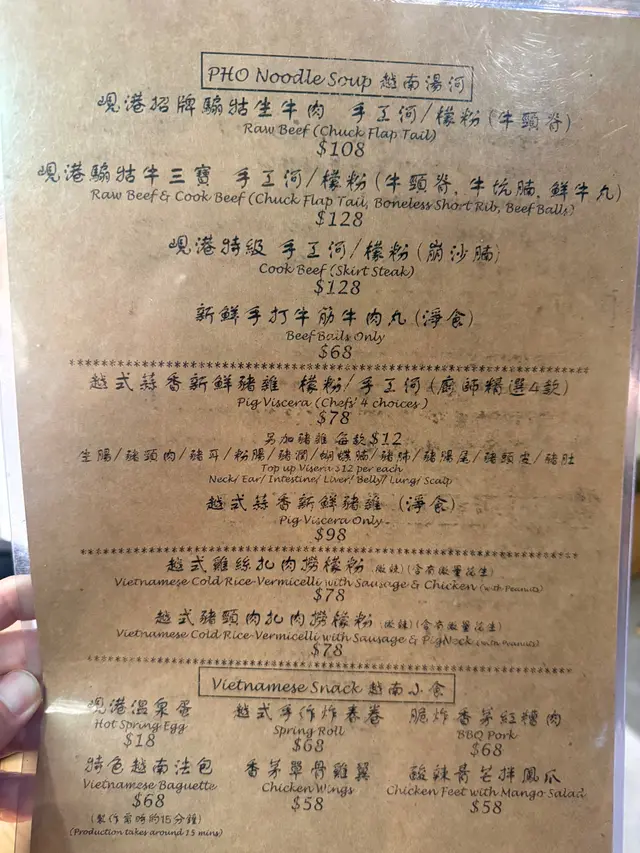 PHO Noodle Soup 越南湯河
峴港招牌騸牯生牛肉 手工河/檬粉 (牛頸脊)
Raw Beef (Chuck Flap Tail)
$108
峴港騸牯牛三寶 手工河/檬粉 (牛頸脊, 牛坑腩, 鮮牛丸)
Raw Beef & Cook Beef (Chuck Flap Tail, Boneless Short Rib, Beef Balls)
$128
峴港特級 手工河/檬粉 (崩沙腩)
Cook Beef (Skirt Steak)
$128
新鮮手打牛筋牛肉丸 (淨食)
Beef Balls Only
$68
越式蒜香新鮮豬雜 檬粉/手工河 (廚師精選4款)
Pig Viscera (Chefs' 4 choices)
$78
另加豬雜 每款$12
生腸/豬頸肉/豬耳/粉腸/豬潤/蝴蝶腩/豬肺/豬腸尾/豬頭皮/豬肚
Top up Visera $12 per each
Neck/ Ear/ Intestine/ Liver/ Belly/ Lung/ Scalp
越式蒜香新鮮豬雜 (淨食)
Pig Viscera Only
$98
越式雞絲扎肉撈檬粉 (微辣)(含有微量花生)
Vietnamese Cold Rice-Vermicelli with Sausage & Chicken (with Peanuts)
$78
越式豬頸肉扎肉撈檬粉 (微辣)(含有微量花生)
Vietnamese Cold Rice-Vermicelli with Sausage & PigNeck (with Peanuts)
$78
Vietnamese Snack 越南小食
峴港溫泉蛋 越式手作炸春卷 脆炸香茅紅糟肉
Hot Spring Egg Spring Roll BBQ Pork
$18 $68 $68
特色越南法包 香茅單骨雞翼 酸辣青芒拌鳳爪
Vietnamese Baguette Chicken Wings Chicken Feet with Mango Salad
$68 $58 $58
(製作需時約15分鐘)
(Production takes around 15 mins)